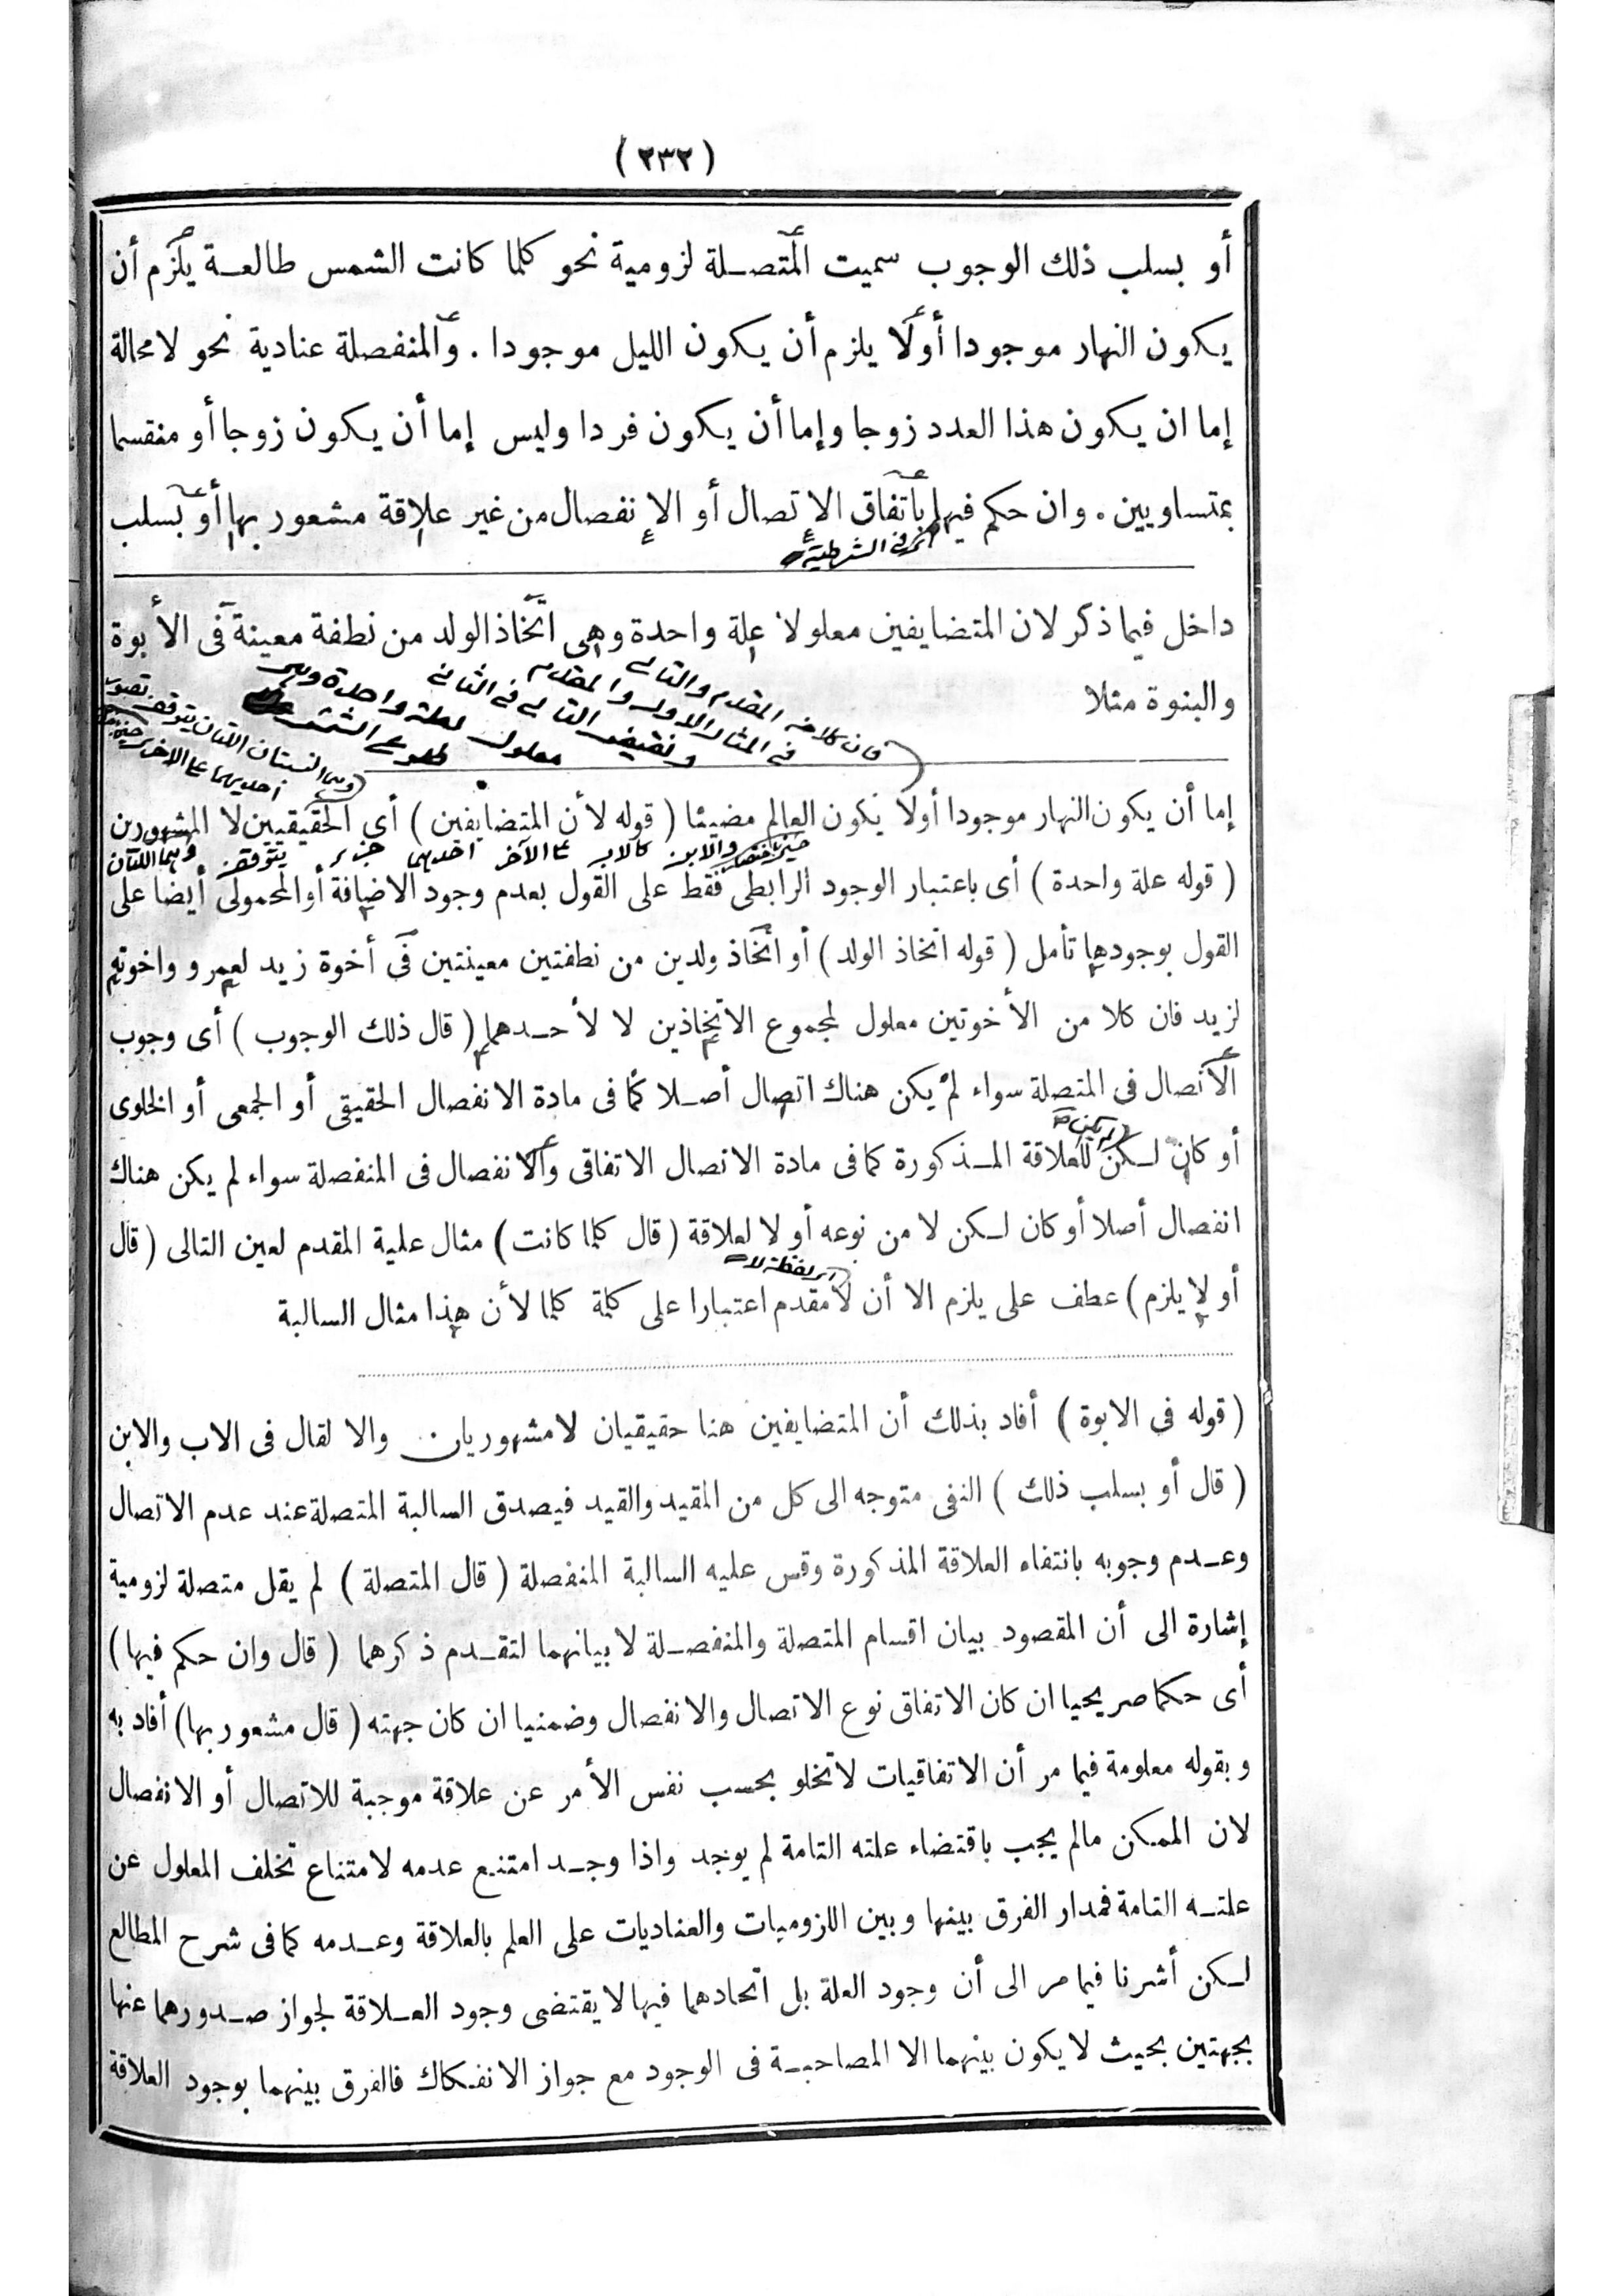 (٢٣٢)
أو بسلب ذلك الوجوب سميت المتصلة لزومية نحو كلما كانت الشمس طالعة يلزم أن
يكون النهار موجودا أولا يلزم أن يكون الليل موجودا . والمنفصلة عنادية نحو لامحالة
إما ان يكون هذا العدد زوجا وإما أن يكون فردا وليس إما أن يكون زوجا أو منقسما
بمتساويين . وان حكم فيها باتفاق الإتصال أو الإنفصال من غير علاقة مشعور بها أو بسلب
أى فى الشرطية
داخل فيما ذكر لان المتضايفين معلولا علة واحدة وهى اتخاذ الولد من نطفة معينة فى الأبوة
والبنوة مثلا
فان كلا من المقدم والتالى
فى المثال الاول والمقدم
ونقيض التالى فى الثانى
معلول لعلة واحدة وهى
طلوع الشمس
وهما النسبتان اللتان يتوقف تصور
احديهما على الاخرى
إما أن يكون النهار موجودا أولا يكون العالم مضيئا ( قوله لأن المتضايفين ) أى الحقيقيين لا المشهورين
وهما اللتان يتوقف جزء احدهما على الآخر كالاب والابن
( قوله علة واحدة ) أى باعتبار الوجود الرابطى فقط على القول بعدم وجود الاضافة أو المحمولى أيضا على
القول بوجودها تأمل ( قوله اتخاذ الولد ) أو اتخاذ ولدين من نطفتين معينتين فى أخوة زيد لعمرو واخوته
لزيد فان كلا من الأخوتين معلول لمجموع الاتخاذين لا لأحدهما ( قال ذلك الوجوب ) أى وجوب
الاتصال فى المتصلة سواء لم يكن هناك اتصال أصلا كما فى مادة الانفصال الحقيقى أو الجمعى أو الخلوى
أو كان لكن للعلاقة المذكورة كما فى مادة الاتصال الاتفاقى والانفصال فى المنفصلة سواء لم يكن هناك
انفصال أصلا أو كان لكن لا من نوعه أو لا لعلاقة ( قال كلما كانت ) مثال علية المقدم لعين التالى ( قال
اى لفظة لا
أو لا يلزم ) عطف على يلزم الا أن لا مقدم اعتبارا على كلمة كلما لأن هذا مثال السالبة
( قوله فى الابوة ) أفاد بذلك أن المتضايفين هنا حقيقيان لامشهوريان والا لقال فى الاب والابن
( قال أو بسلب ذلك ) النفى متوجه الى كل من المقيد والقيد فيصدق السالبة المتصلة عند عدم الاتصال
وعدم وجوبه بانتفاء العلاقة المذكورة وقس عليه السالبة المنفصلة ( قال المتصلة ) لم يقل متصلة لزومية
إشارة الى أن المقصود بيان اقسام المتصلة والمنفصلة لا بيانهما لتقدم ذكرهما ( قال وان حكم فيها )
أى حكما صريحيا ان كان الاتفاق نوع الاتصال والانفصال وضمنيا ان كان جهته ( قال مشعور بها ) أفاد به
وبقوله معلومة فيما مر أن الاتفاقيات لاتخلو بحسب نفس الأمر عن علاقة موجبة للاتصال أو الانفصال
لان الممكن مالم يجب باقتضاء علته التامة لم يوجد واذا وجد امتنع عدمه لامتناع تخلف المعلول عن
علته التامة فمدار الفرق بينها وبين اللزوميات والعناديات على العلم بالعلاقة وعدمه كما فى شرح المطالع
لكن أشرنا فيما مر الى أن وجود العلة بل اتحادهما فيها لا يقتضى وجود العلاقة لجواز صدورهما عنها
بجهتين بحيث لا يكون بينهما الا المصاحبة فى الوجود مع جواز الانفكاك فالفرق بينهما بوجود العلاقة